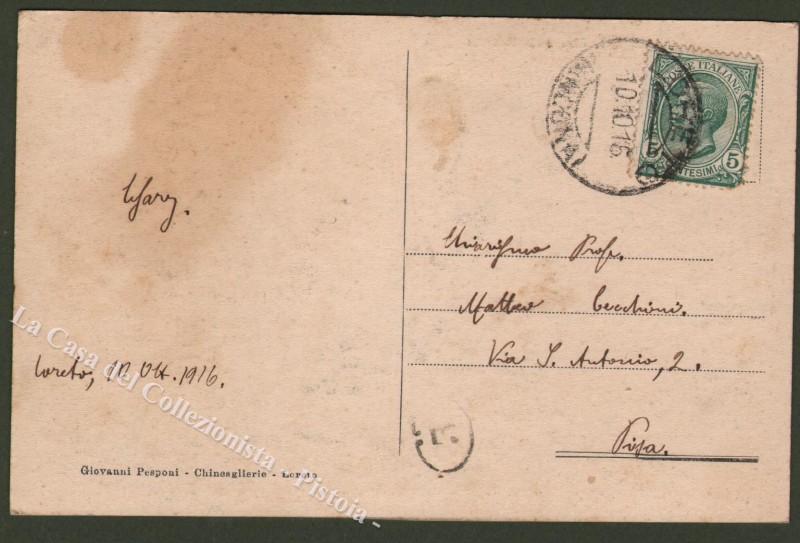 Loreto, 10 Ott. 1916.
Giovanni Pesponi - Chincaglierie - Loreto
POSTE ITALIANE
5 CENTESIMI 5
10.10.16
Chiarissimo Prof.
Matteo Cecchini.
Via S. Antonio, 2.
Pisa.
La Casa del Collezionista - Pistoia -